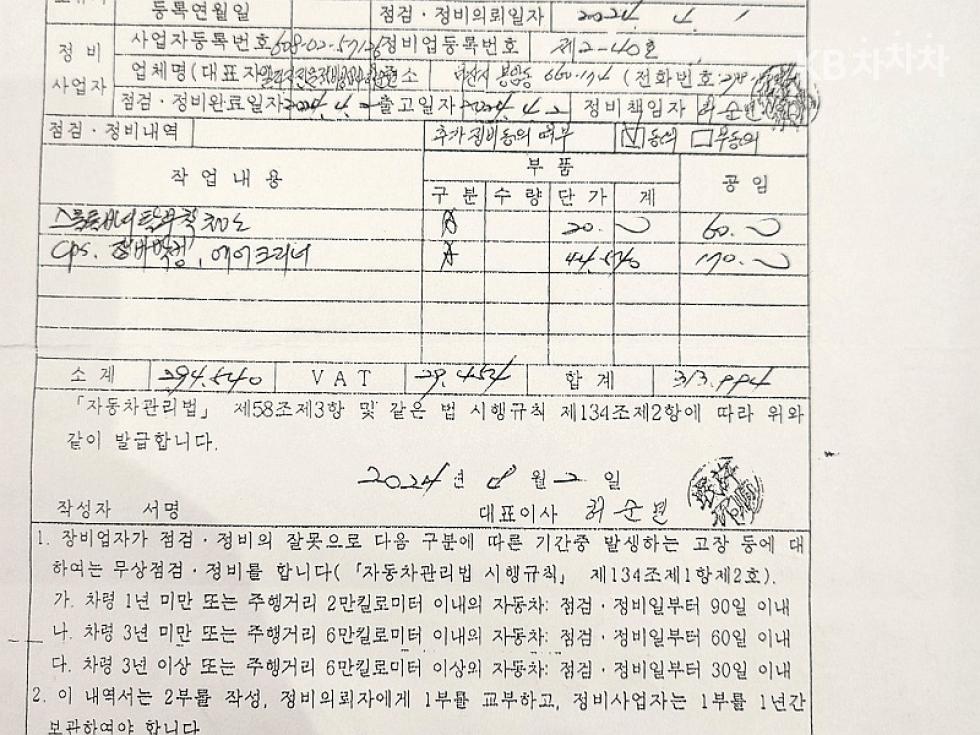 등록연월일 점검·정비의뢰일자 2024. 4. 1
정비 사업자등록번호 608-02-57126 정비업등록번호 제2-40호
KB차차차
사업자 업체명(대표자 660-174 (전화번호:
점검·정비완료일자 2024. 4. 2 출고일자 2024. 4. 2 정비책임자 허순
점검·정비내역 추가정비동의 여부 ☑동의 □부동의
작업내용 부품 공임
구분 수량 단가 계
A 20. 60.
cps. 에어크리너 A 44.540 170.
소계 294.540 VAT 29.454 합계 313.994
「자동차관리법」 제58조제3항 및 같은 법 시행규칙 제134조제2항에 따라 위와
같이 발급합니다.
2024년 4월 2일
작성자 서명 대표이사 허순
1. 장비업자가 점검·정비의 잘못으로 다음 구분에 따른 기간중 발생하는 고장 등에 대
하여는 무상점검·정비를 합니다(「자동차관리법 시행규칙」 제134조제1항제2호).
가. 차령 1년 미만 또는 주행거리 2만킬로미터 이내의 자동차: 점검·정비일부터 90일 이내
나. 차령 3년 미만 또는 주행거리 6만킬로미터 이내의 자동차: 점검·정비일부터 60일 이내
다. 차령 3년 이상 또는 주행거리 6만킬로미터 이상의 자동차: 점검·정비일부터 30일 이내
2. 이 내역서는 2부를 작성, 정비의뢰자에게 1부를 교부하고, 정비사업자는 1부를 1년간
보관하여야 합니다.